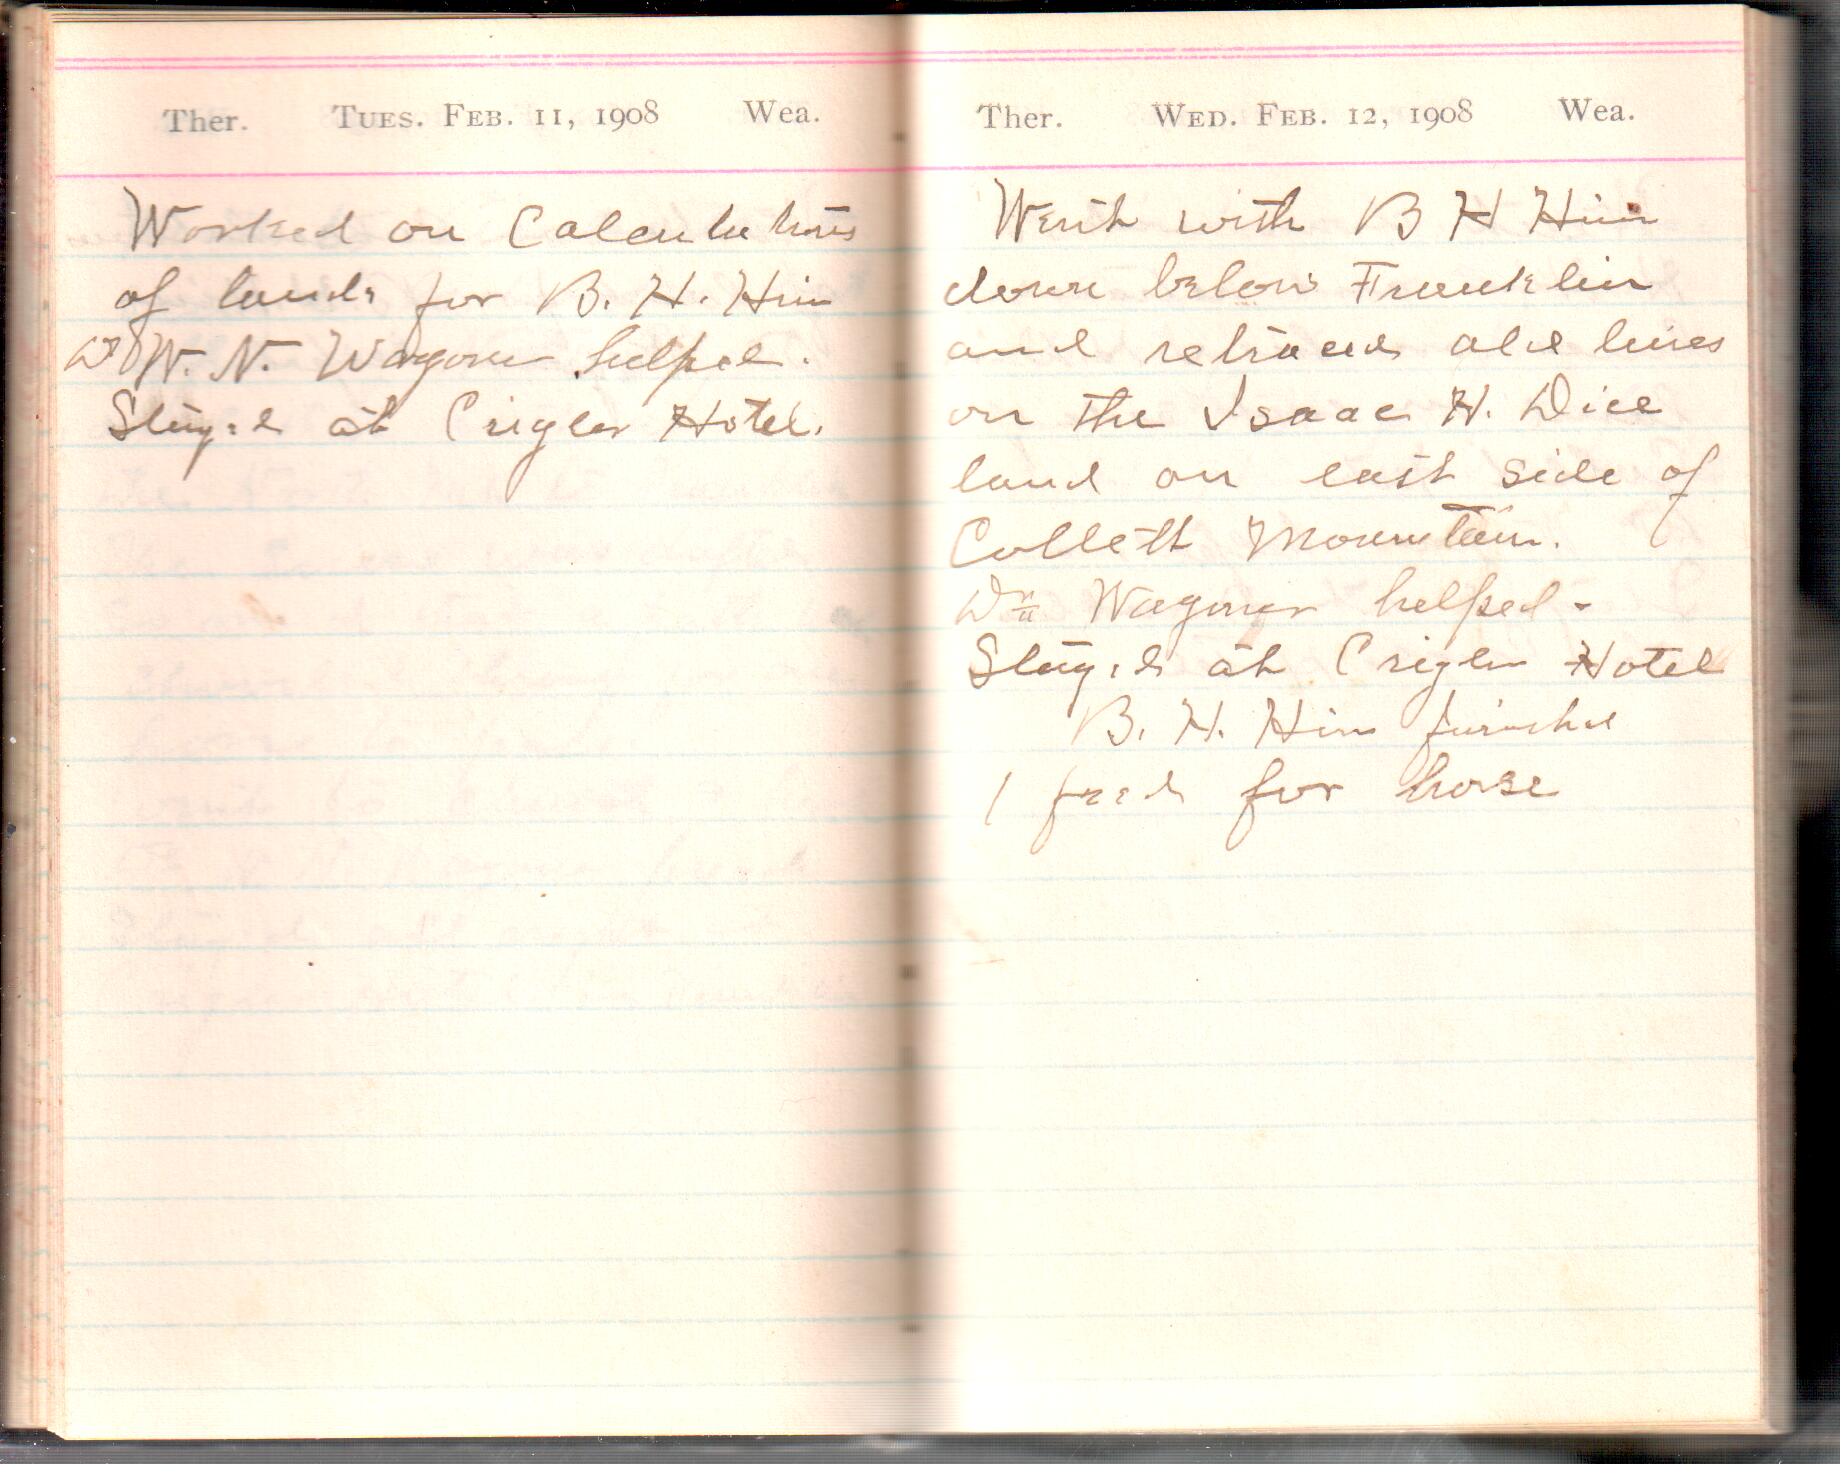 Ther. Tues. Feb. 11, 1908 Wea.
Worked on Calculations
of lands for B. H. Hiner
W. N. Wagoner helped.
Stayed at Crigler Hotel.
Ther. Wed. Feb. 12, 1908 Wea.
Went with B H Hiner
down below Franklin
and retraced old lines
on the Isaac H. Dice
land on east side of
Collett Mountain.
Wagoner helped -
Stayed at Crigler Hotel
B. H. Hiner furnished
1 feed for horse